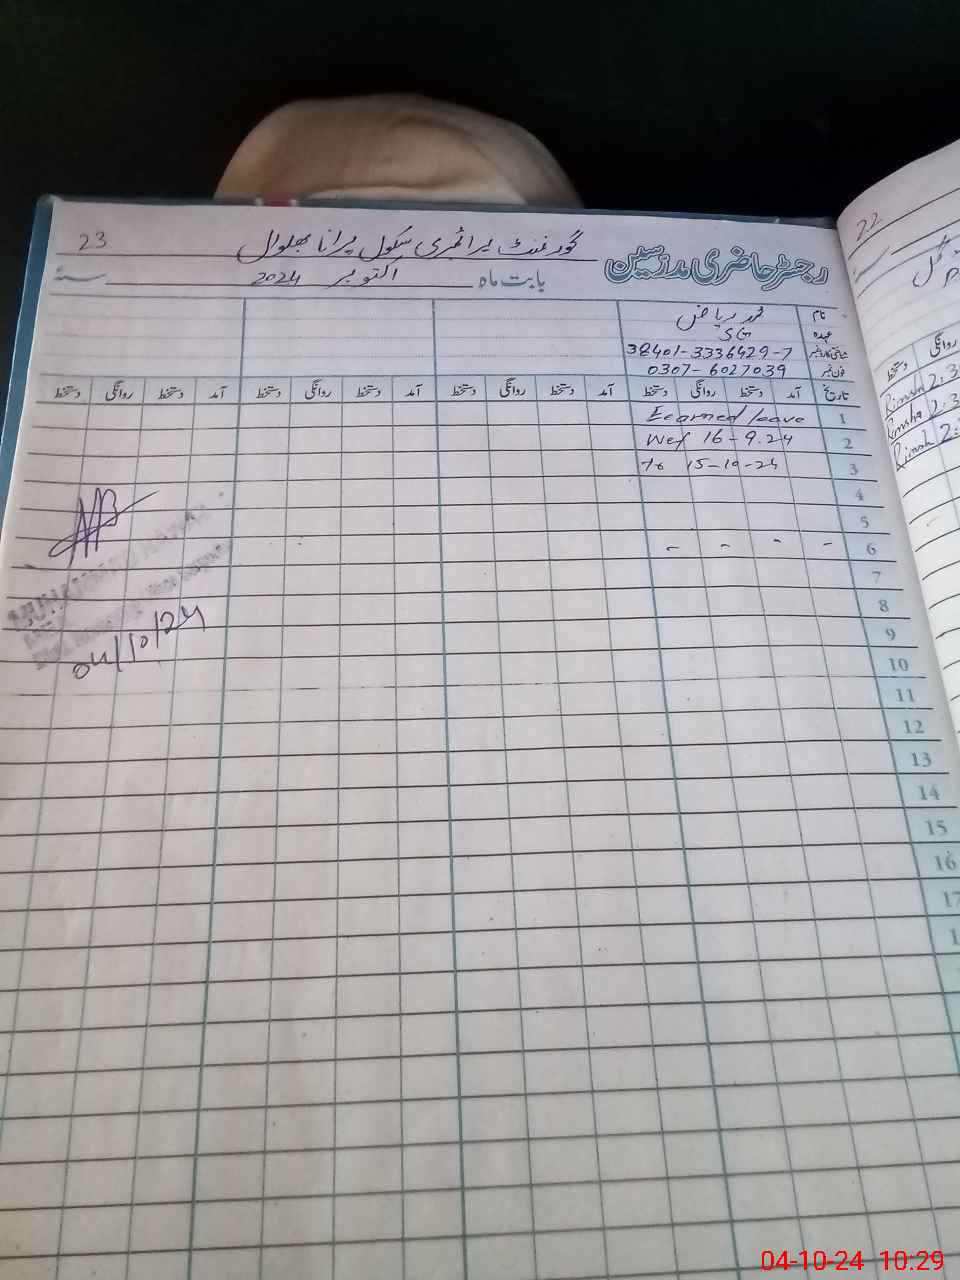 23
گورنمنٹ پرائمری سکول پرانا بھلوال
رجسٹر حاضری مدرسین
بابت ماہ اکتوبر 2024 سنہ
نام محمد ریاض
عہدہ
شناختی کارڈ نمبر 38401-3336429-7
فون نمبر 0307-6027039
تاریخ آمد دستخط روانگی دستخط آمد دستخط روانگی دستخط آمد دستخط روانگی دستخط آمد دستخط روانگی دستخط
1 Learned leave
2 Wef 16-9.24
3 To 15-10-24
4
5
6 - - - -
7
8
9
10
11
12
13
14
15
16
17
04/10/24
22
روانگی دستخط
Rimsha 2:3
Rimsha 2:3
Rimsh 2:
04-10-24 10:29